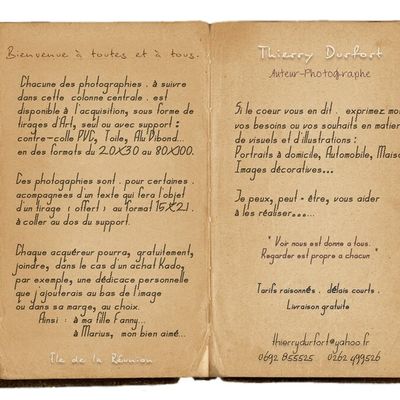 Bienvenue à toutes et à tous.
Chacune des photographies . à suivre
dans cette colonne centrale . est
disponible à l'acquisition, sous forme de
tirages d'Art, seul ou avec support :
contre-collé PVC, Toile, Alu Dibond...
en des formats du 20X30 au 80X100.
Ces photogaphies sont . pour certaines .
acompagnées d'un texte qui fera l'objet
d'un tirage ( offert ) au format 15X21 .
à coller au dos du support.
Chaque acquéreur pourra, gratuitement,
joindre, dans le cas d'un achat Kado,
par exemple, une dédicace personnelle
que j'ajouterais au bas de l'image
ou dans sa marge, au choix.
Ainsi : à ma fille Fanny...
à Marius, mon bien aimé...
Ile de la Réunion
Thierry Durfort
Auteur-Photographe
Si le coeur vous en dit . exprimez moi
vos besoins ou vos souhaits en matier
de visuels et d'illustrations :
Portraits à domicile, Automobile, Maiso
Images décoratives...
Je peux, peut - être, vous aider
à les réaliser......
" Voir nous est donné à tous.
Regarder est propre à chacun "
Tarifs raisonnés . délais courts .
Livraison gratuite
thierrydurfort@yahoo.fr
0692 855525 0262 499526